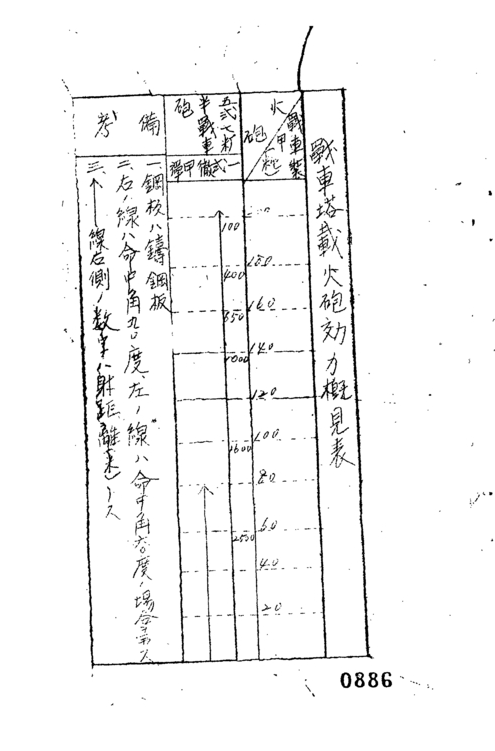 戰車塔載火砲効力概見表
戰車裝甲(粍)
火砲
200
180
160
140
120
100
80
60
40
20
五式七糎半戰車砲
一式徹甲彈
100
400
850
1000
1600
2500
備考
一、鋼板ハ鑄鋼板
二、右ノ線ハ命中角九〇度左ノ線ハ命中角六〇度ノ場合ヲ示ス
三、↑線右側ノ数字ハ射距離(米)トス
0886